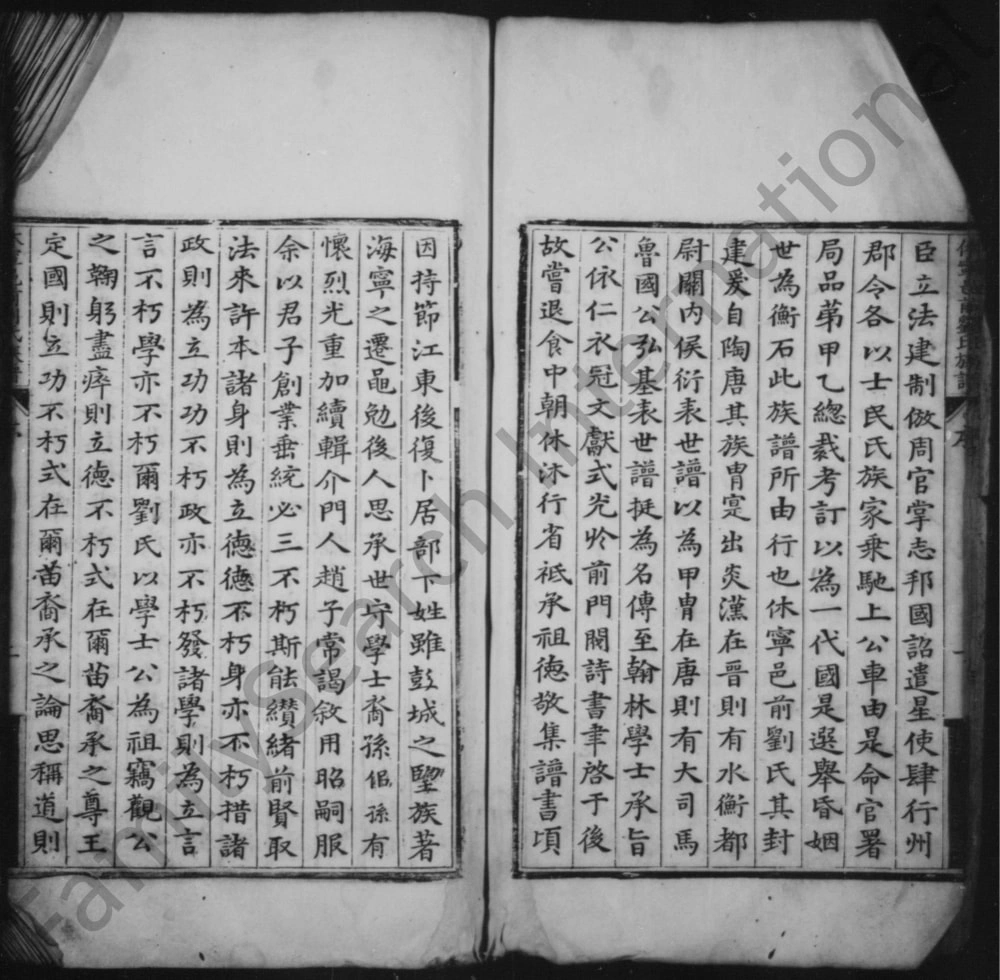 臣立法建制倣周官掌志邦國詔遣星使肆行州
郡令各以士民氏族家乗馳上公車由是命官署
局品苐甲乙總裁考訂以為一代國是選舉昏姻
世為衡石此族譜所由行也休寧邑前劉氏其封
建爰自陶唐其族胄寔出炎漢在晉則有水衡都
尉關內侯衍表世譜以為甲胄在唐則有大司馬
魯國公弘基表世譜挺為名傳至翰林學士承旨
公依仁衣冠文獻式光於前門閥詩書聿啓于後
故嘗退食中朝休沐行省祗承祖徳敬集譜書頃
因持節江東後復卜居部下姓雖彭城之望族著
海寧之遷黽勉後人思承世守學士裔孫倡孫有
懷烈光重加續輯介門人趙子常謁敘用昭嗣服
余以君子創業垂統必三不朽斯能纘緒前賢取
法來許本諸身則為立德德不朽身亦不朽措諸
政則為立功功不朽政亦不朽發諸學則為立言
言不朽學亦不朽爾劉氏以學士公為祖竊觀公
之鞠躬盡瘁則立德不朽式在爾苗裔承之尊王
定國則立功不朽式在爾苗裔承之論思稱道則
FamilySearch International